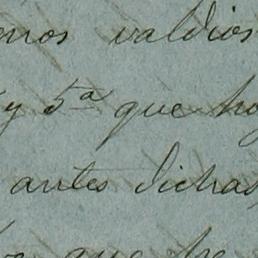 enos valdios
y 5ª que ho
antes dichas
que he